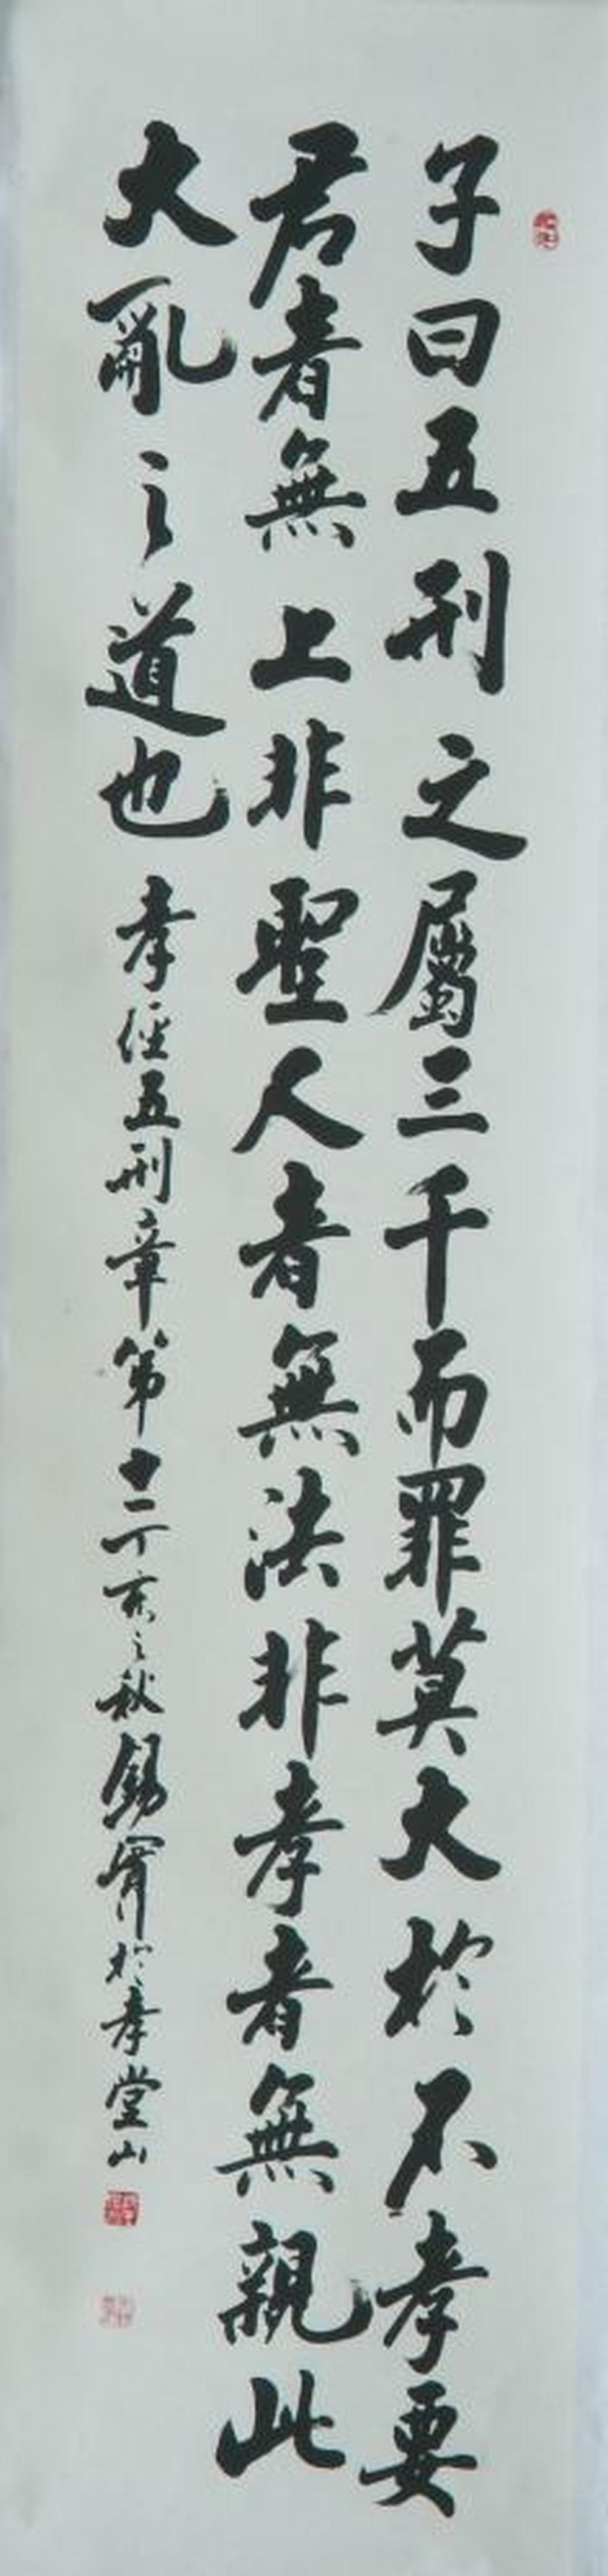 子曰五刑之屬三千而罪莫大於不孝要
君者無上非聖人者無法非孝者無親此
大亂之道也 孝經五刑章第十一丁亥之秋錫肾於孝堂山